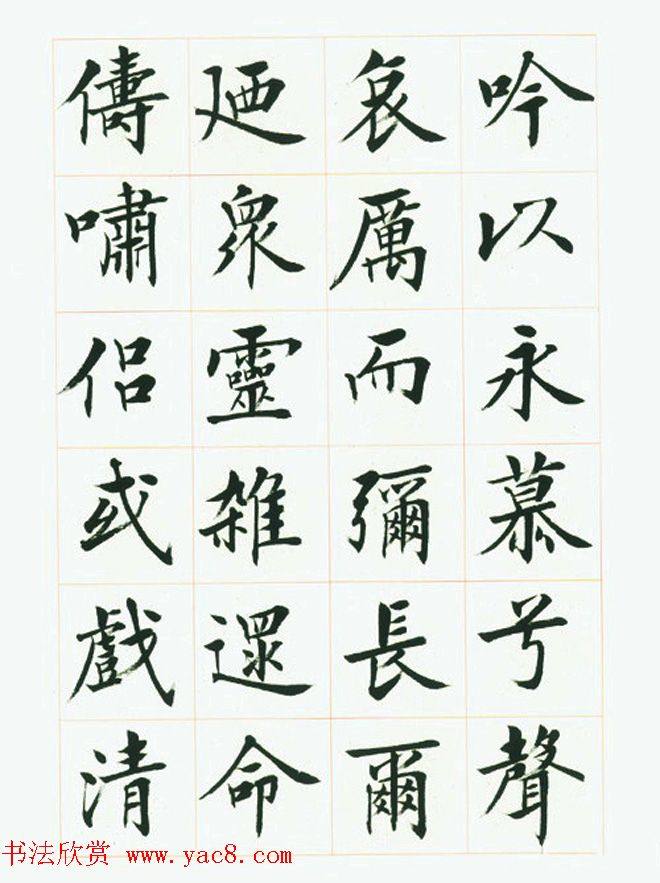 吟以永慕兮聲
哀厲而彌長爾
廼衆靈雜遝命
儔嘯侶或戲清
书法欣赏 www.yac8.com